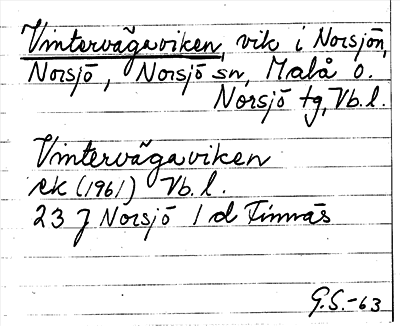 Vintervägaviken, vik i Norsjön,
Norsjö, Norsjö sn, Malå o.
Norsjö tg, Vb. l.
Vintervägaviken
ek (1961) Vb. l.
23 J Norsjö 1 d Finnäs
G.S.-63